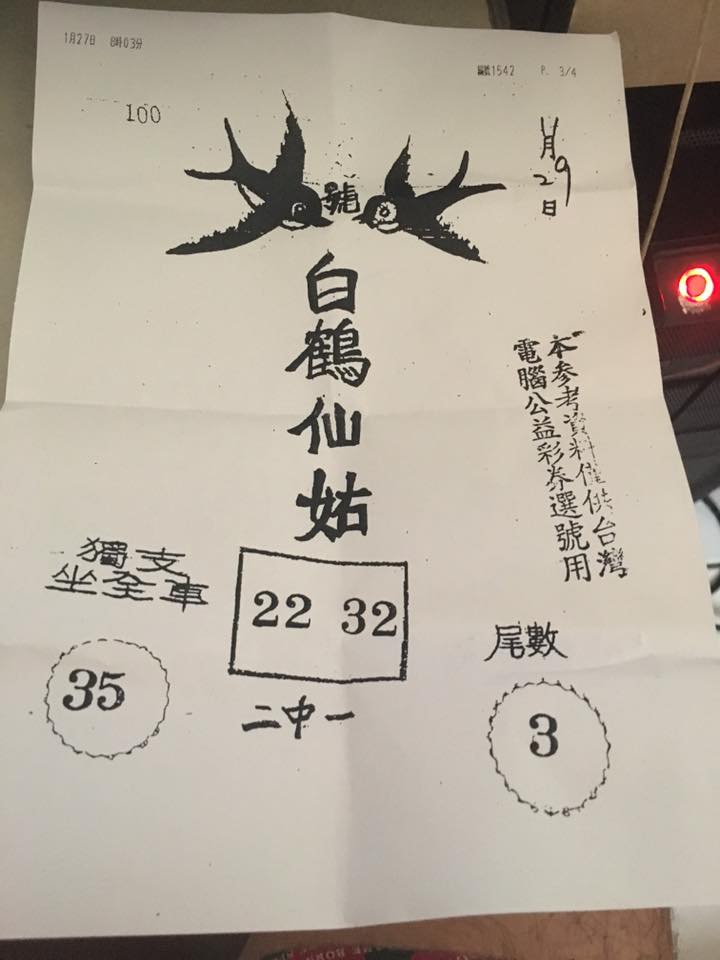 1月27日 8時03分
編號1542 P. 3/4
100
1月29日
號
白鶴仙姑
本参考資料僅供台灣
電腦公益彩券選號用
獨支
坐全車
22 32
尾數
35
二中一
3